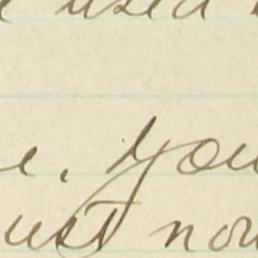 used
e. You
ust now